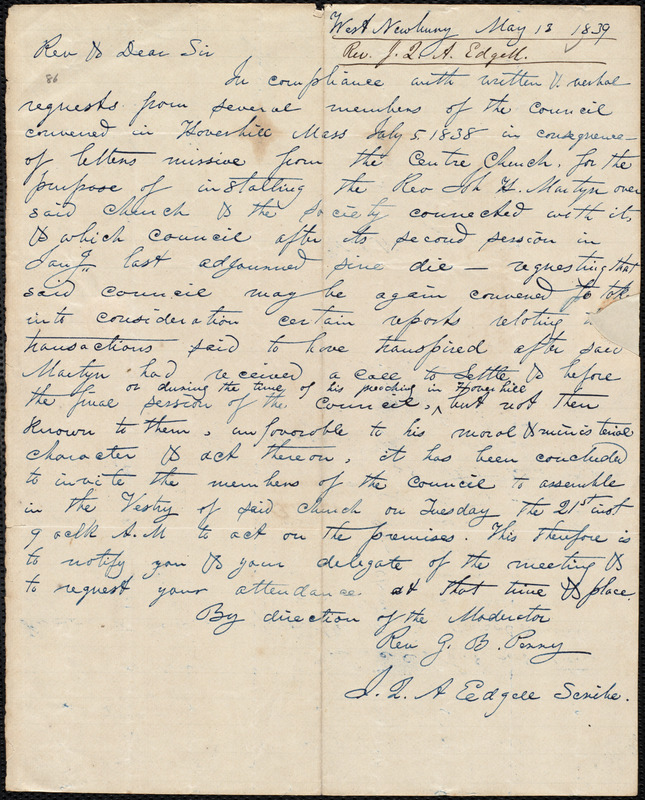 West Newbury May 13 1839
Rev. J. Q. A. Edgell.
Rev & Dear Sir
86
In compliance with written & verbal
requests from several members of the Council
convened in Haverhill Mass July 5. 1838 in consequence
of letters missive from the Centre Church, for the
purpose of installing the Rev Job H. Martyn over
said church & the society connected with it,
& which council after its second session in
last adjourned sine die — requesting that
said council may be again convened to take
into consideration certain reports relating
transactions said to have transpired after said
Martyn had received a call to settle & before
or during the time of his preaching in Haverhill
the final session of the Council, ^ but not then
known to them, unfavorable to his moral & ministerial
character & act thereon, it has been concluded
to invite the members of the Council to assemble
in the Vestry of said church on Tuesday the 21st inst
9 oclk A.M to act on the premises. This therefore is
to notify you & your delegate of the meeting &
to request your attendance at that time & place.
By direction of the Moderator
Rev G. B. Perry
J. Q. A Edgell Scribe.